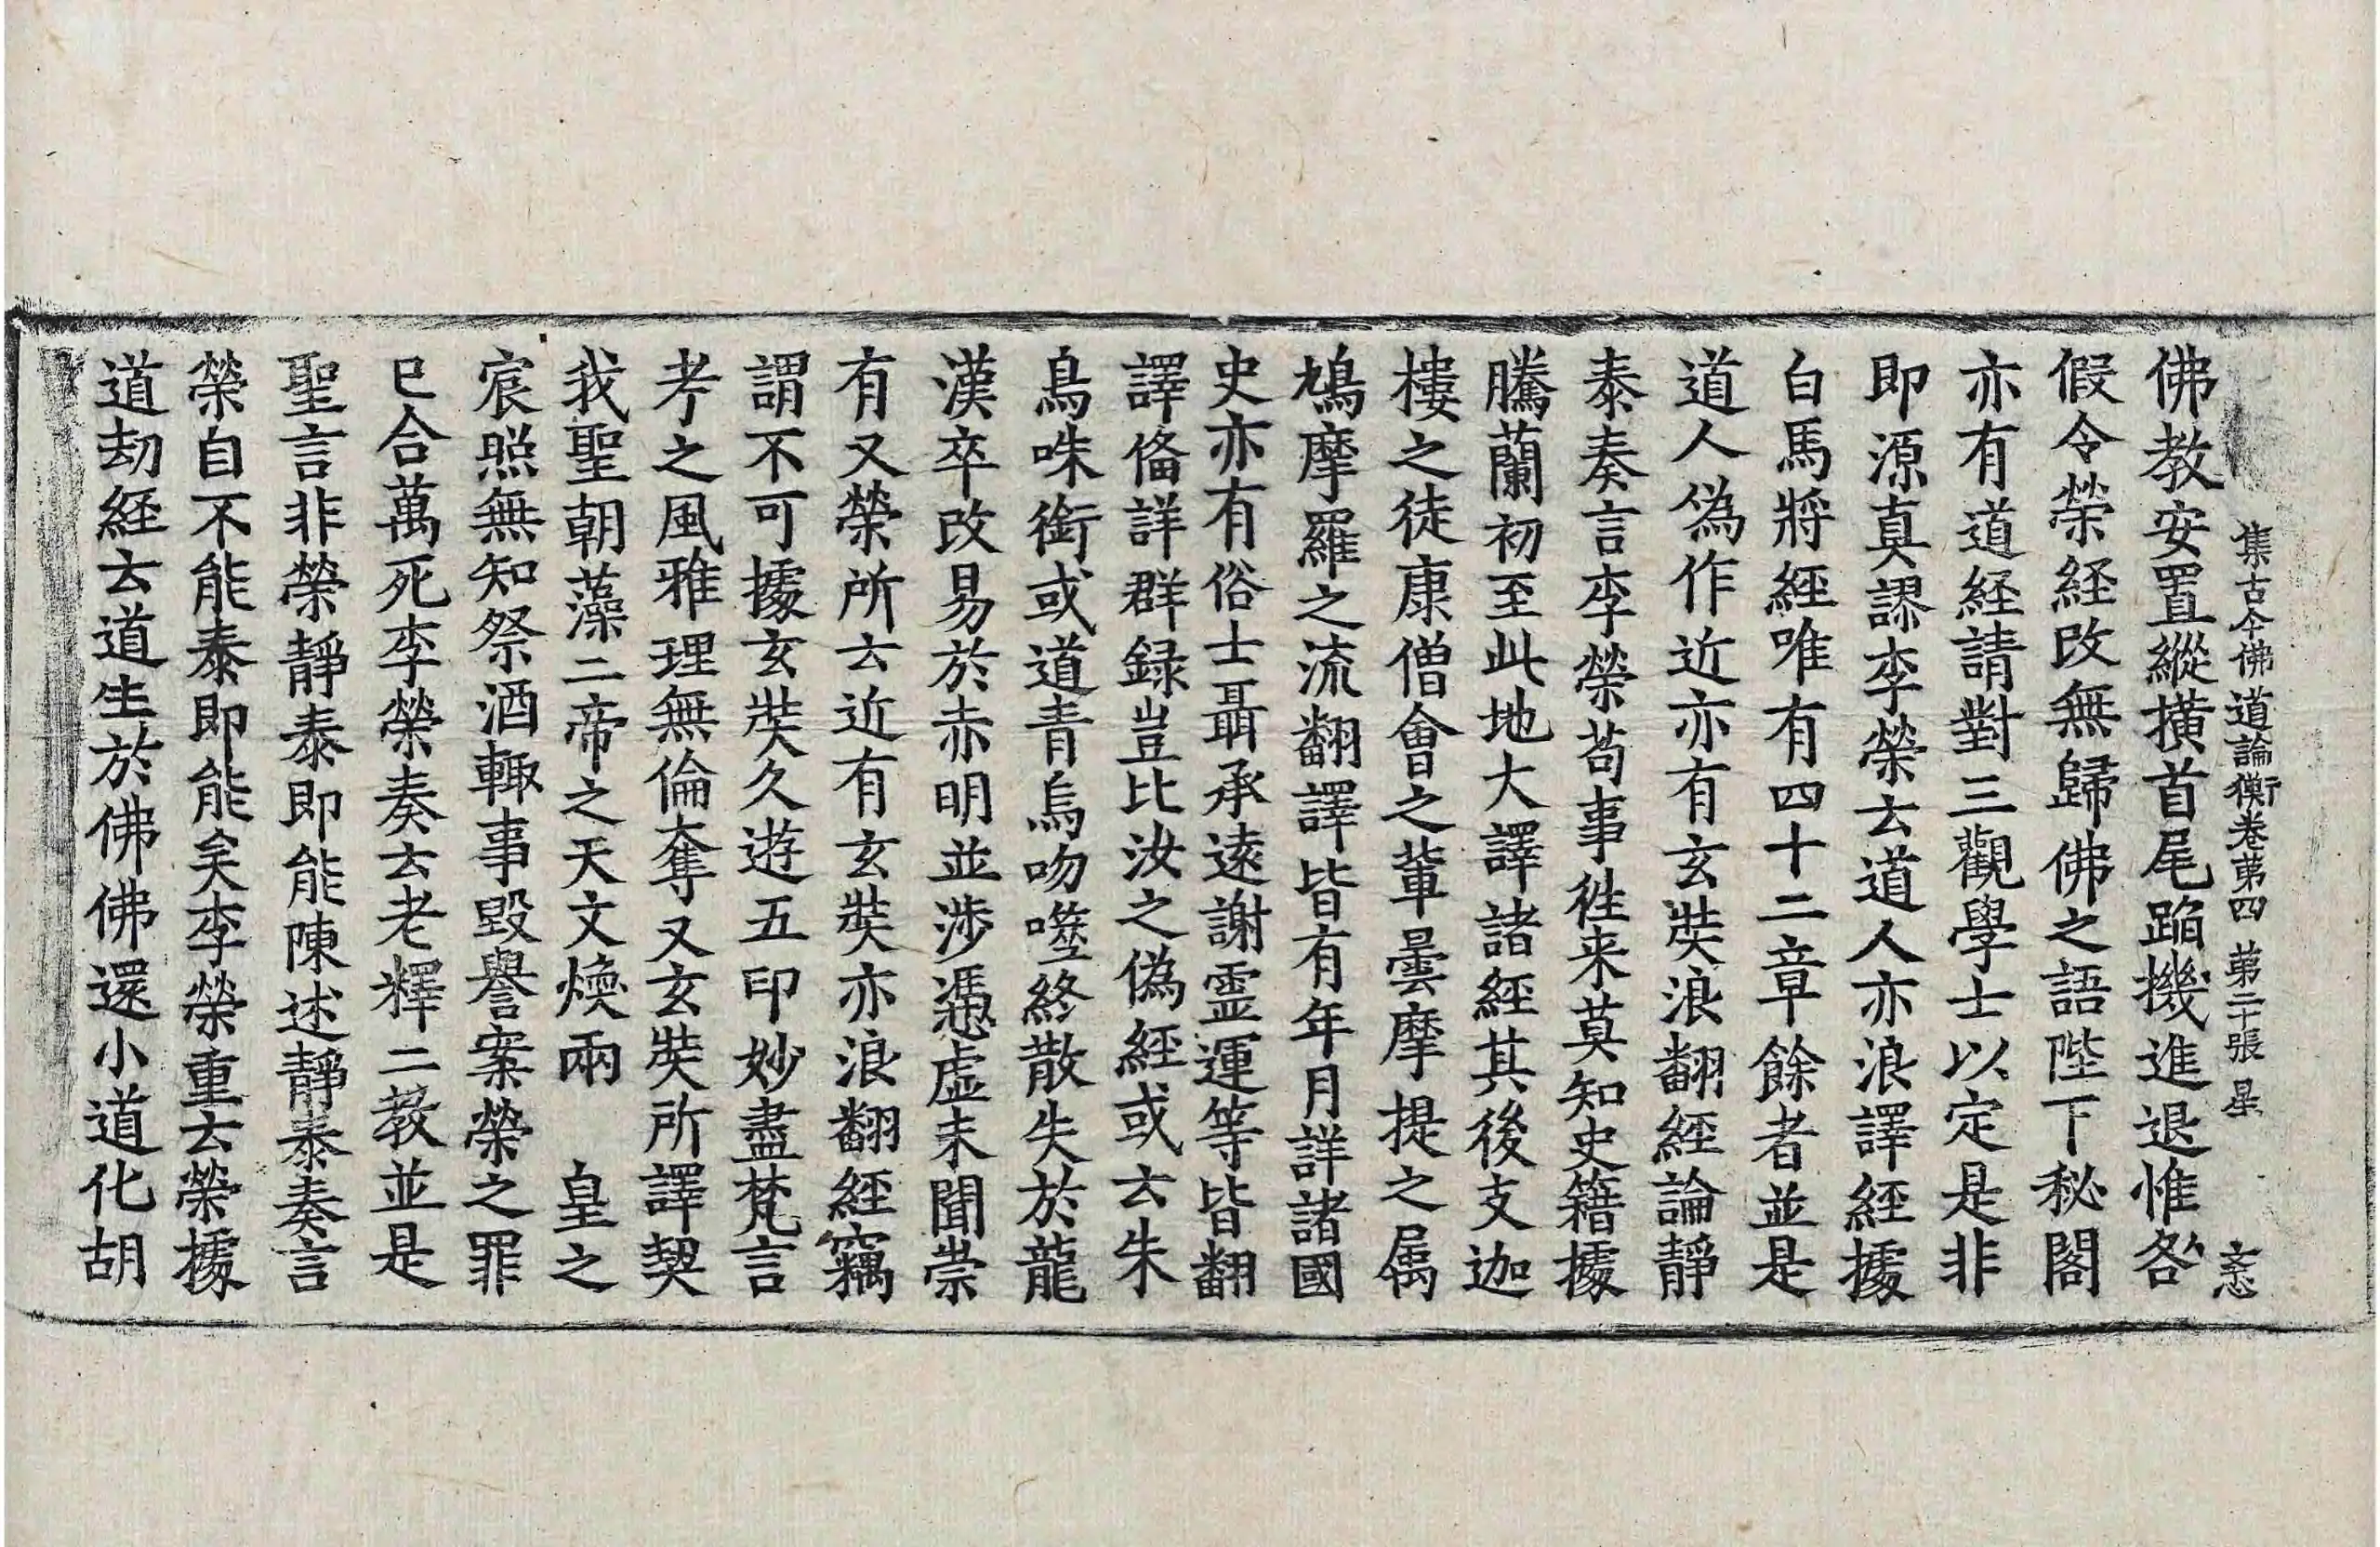 集古今佛道論衡卷第四 第二十張 星 忞
佛教安置縱撗首尾蹈機進退惟咎
假令榮経改無歸佛之語陛下秘閣
亦有道経請對三觀學士以定是非
即源真謬李榮去道人亦浪譯経據
白馬將経唯有四十二章餘者並是
道人偽作近亦有玄奘浪翻経論靜
泰奏言李榮苟事徃来莫知史籍據
騰蘭初至此地大譯諸経其後支迦
樓之徒康僧會之軰曇摩提之屬
鳩摩羅之流翻譯皆有年月詳諸國
史亦有俗士聶承遠謝霊運等皆翻
譯俻詳群録豈比汝之偽経或去朱
鳥咮銜或道青烏吻噬終散失於龍
漢卒改易於赤明並渉憑虚未聞崇
有又榮所去近有玄奘亦浪翻経竊
謂不可據玄奘久遊五印妙盡梵言
考之風雅理無倫奪又玄奘所譯契
我聖朝藻二帝之天文煥兩 皇之
宸照無知祭酒輙事毀譽案榮之罪
已合萬死李榮奏去老釋二教並是
聖言非榮靜泰即能陳述靜泰奏言
榮自不能泰即能矣李榮重去榮據
道刧経去道生於佛佛還小道化胡